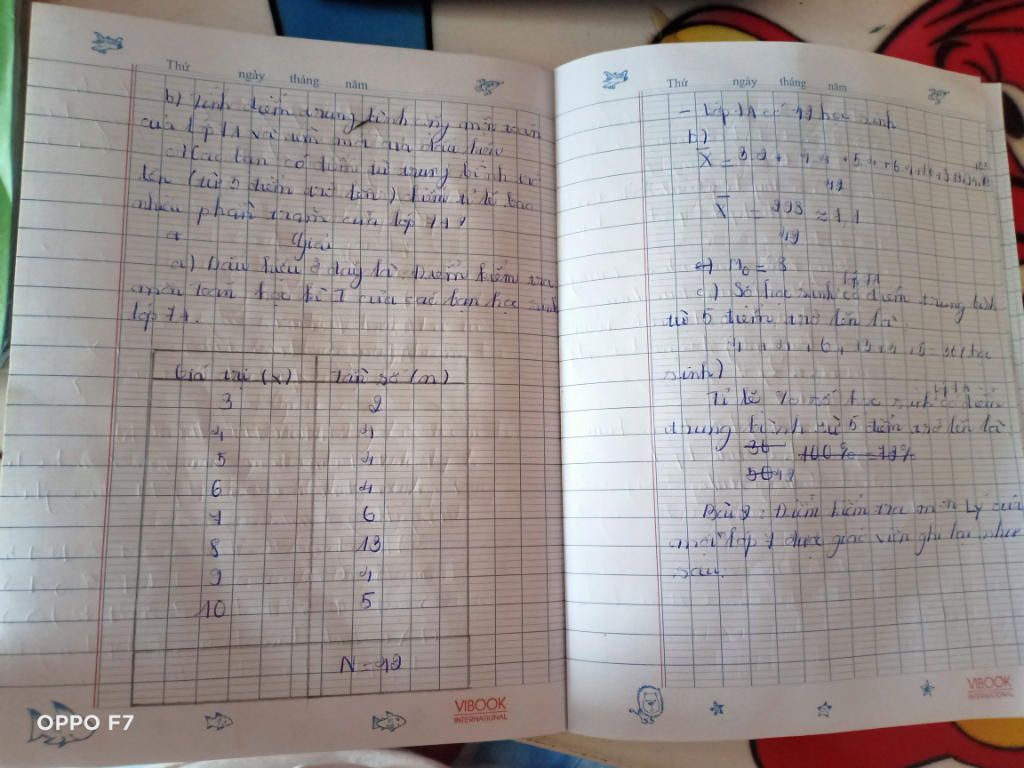 Thứ ngày tháng năm
b) Tính điểm trung bình môn toán
của lớp 7A và tìm mốt của dấu hiệu
c) Các bạn có điểm từ trung bình trở
lên (từ 5 điểm trở lên) chiếm tỉ lệ bao
nhiêu phần trăm của lớp 7A?
Giải
a) Dấu hiệu ở đây là: Điểm kiểm tra
môn toán học kì I của các bạn học sinh
lớp 7A.
Giá trị (x) Tần số (n)
3 2
4 4
5 4
6 4
7 6
8 13
9 4
10 5
N = 42
OPPO F7
VIBOOK
INTERNATIONAL
Thứ ngày tháng năm
- Lớp 7A có 42 học sinh
b)
42
X =
≈ 7,1
42
c) M₀ = 8
d) Số học sinh có điểm trung bình
từ 5 điểm trở lên là
= 36 (học
sinh)
Tỉ lệ % số học sinh có điểm
trung bình từ 5 điểm trở lên là
36 . 100%
42
Bài 2: Điểm kiểm tra môn Lý của
một lớp 7 được giáo viên ghi lại như
sau:
VIBOOK
INTERNATIONAL